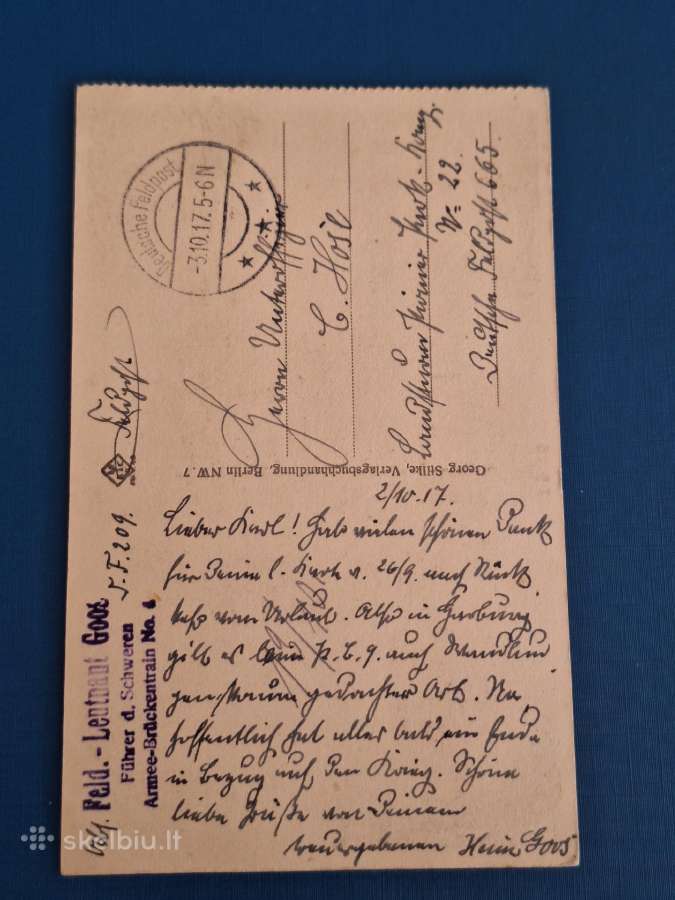 Deutsche Feldpost
-3.10.17.5-6N
Feldpost
Herrn Unteroffizier
C. Hose
N= 22.
Deutsche Feldpost 665.
Georg Stilke, Verlagsbuchhandlung, Berlin NW. 7
Feld.-Leutnant Goos
Führer d. Schweren
Armee-Brückentrain No.
209.
2/10.17.
Lieber Karl! Hab vielen schönen Dank
für Deine l. Karte v. 26/9. nach Rück
vom Urlaub. Also in Harburg
gilt es beim P. B. 9. auch
gedachter Art. Na
hoffentlich hat alles bald ein Ende
in Bezug auf den Krieg. Schöne
liebe Grüße von Deinem
treuergebenen Hein Goos
skelbiu.lt